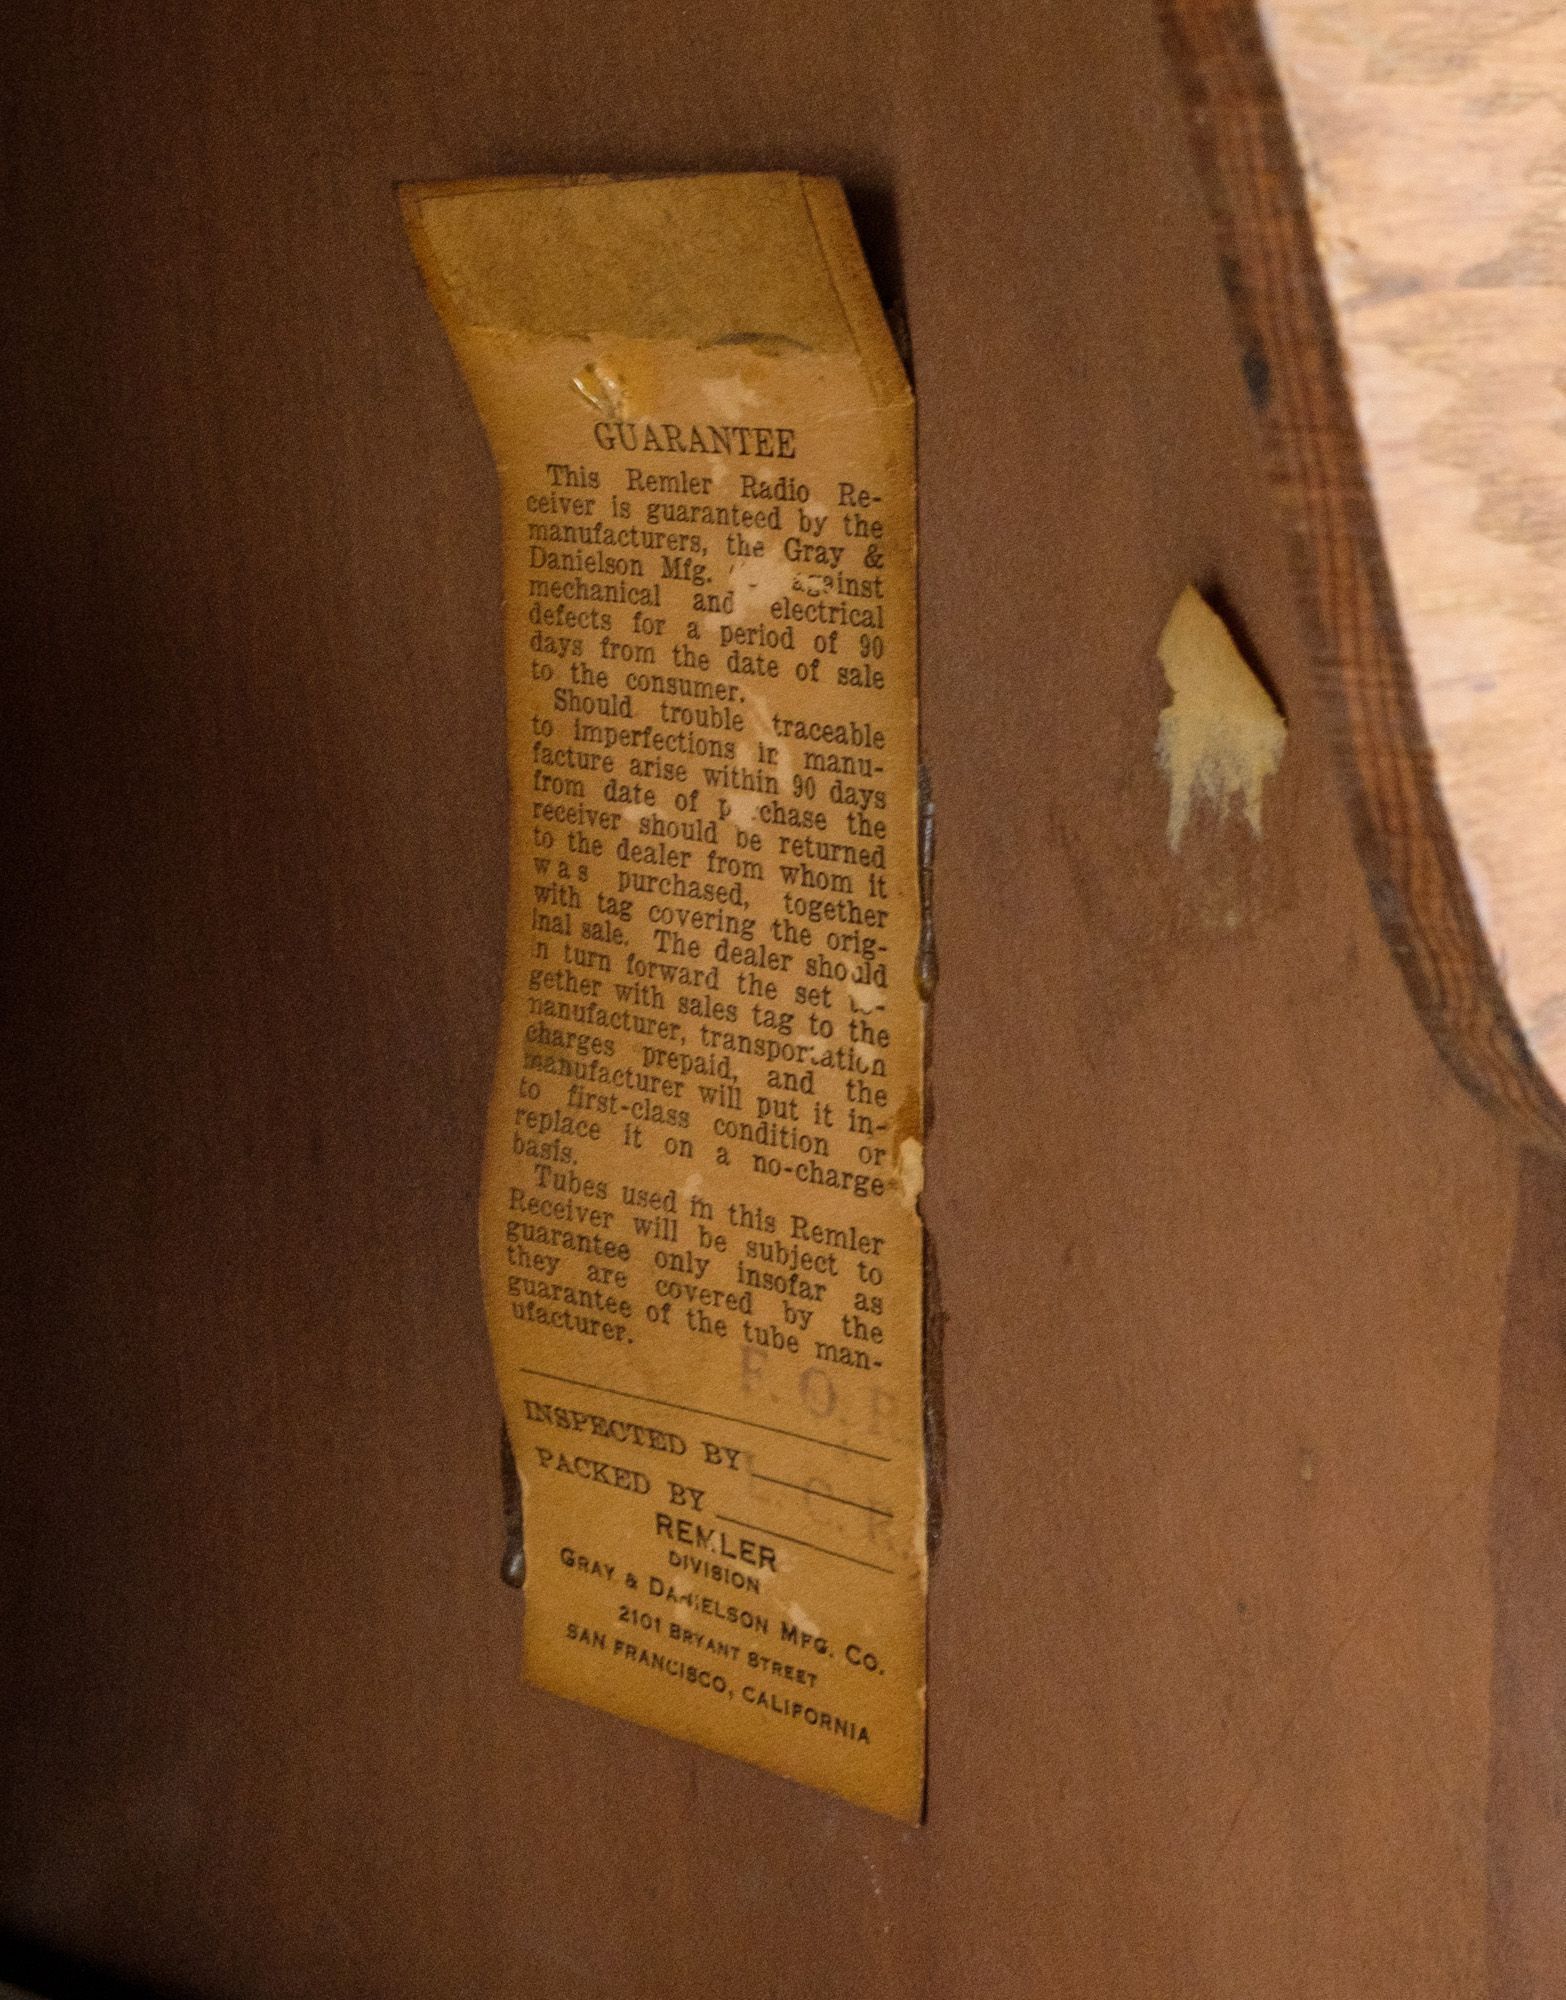 GUARANTEE
This Remler Radio Re-
ceiver is guaranteed by the
manufacturers, the Gray &
Danielson Mfg. against
mechanical and electrical
defects for a period of 90
days from the date of sale
to the consumer.
Should trouble traceable
to imperfections in manu-
facture arise within 90 days
from date of purchase the
receiver should be returned
to the dealer from whom it
was purchased, together
with tag covering the orig-
inal sale. The dealer should
in turn forward the set to-
gether with sales tag to the
manufacturer, transportation
charges prepaid, and the
manufacturer will put it in-
to first-class condition or
replace it on a no-charge
basis.
Tubes used in this Remler
Receiver will be subject to
guarantee only insofar as
they are covered by the
guarantee of the tube man-
ufacturer.
F. O. R.
INSPECTED BY
PACKED BY
REMLER
DIVISION
GRAY & DANIELSON MFG. CO.
2101 BRYANT STREET
SAN FRANCISCO, CALIFORNIA